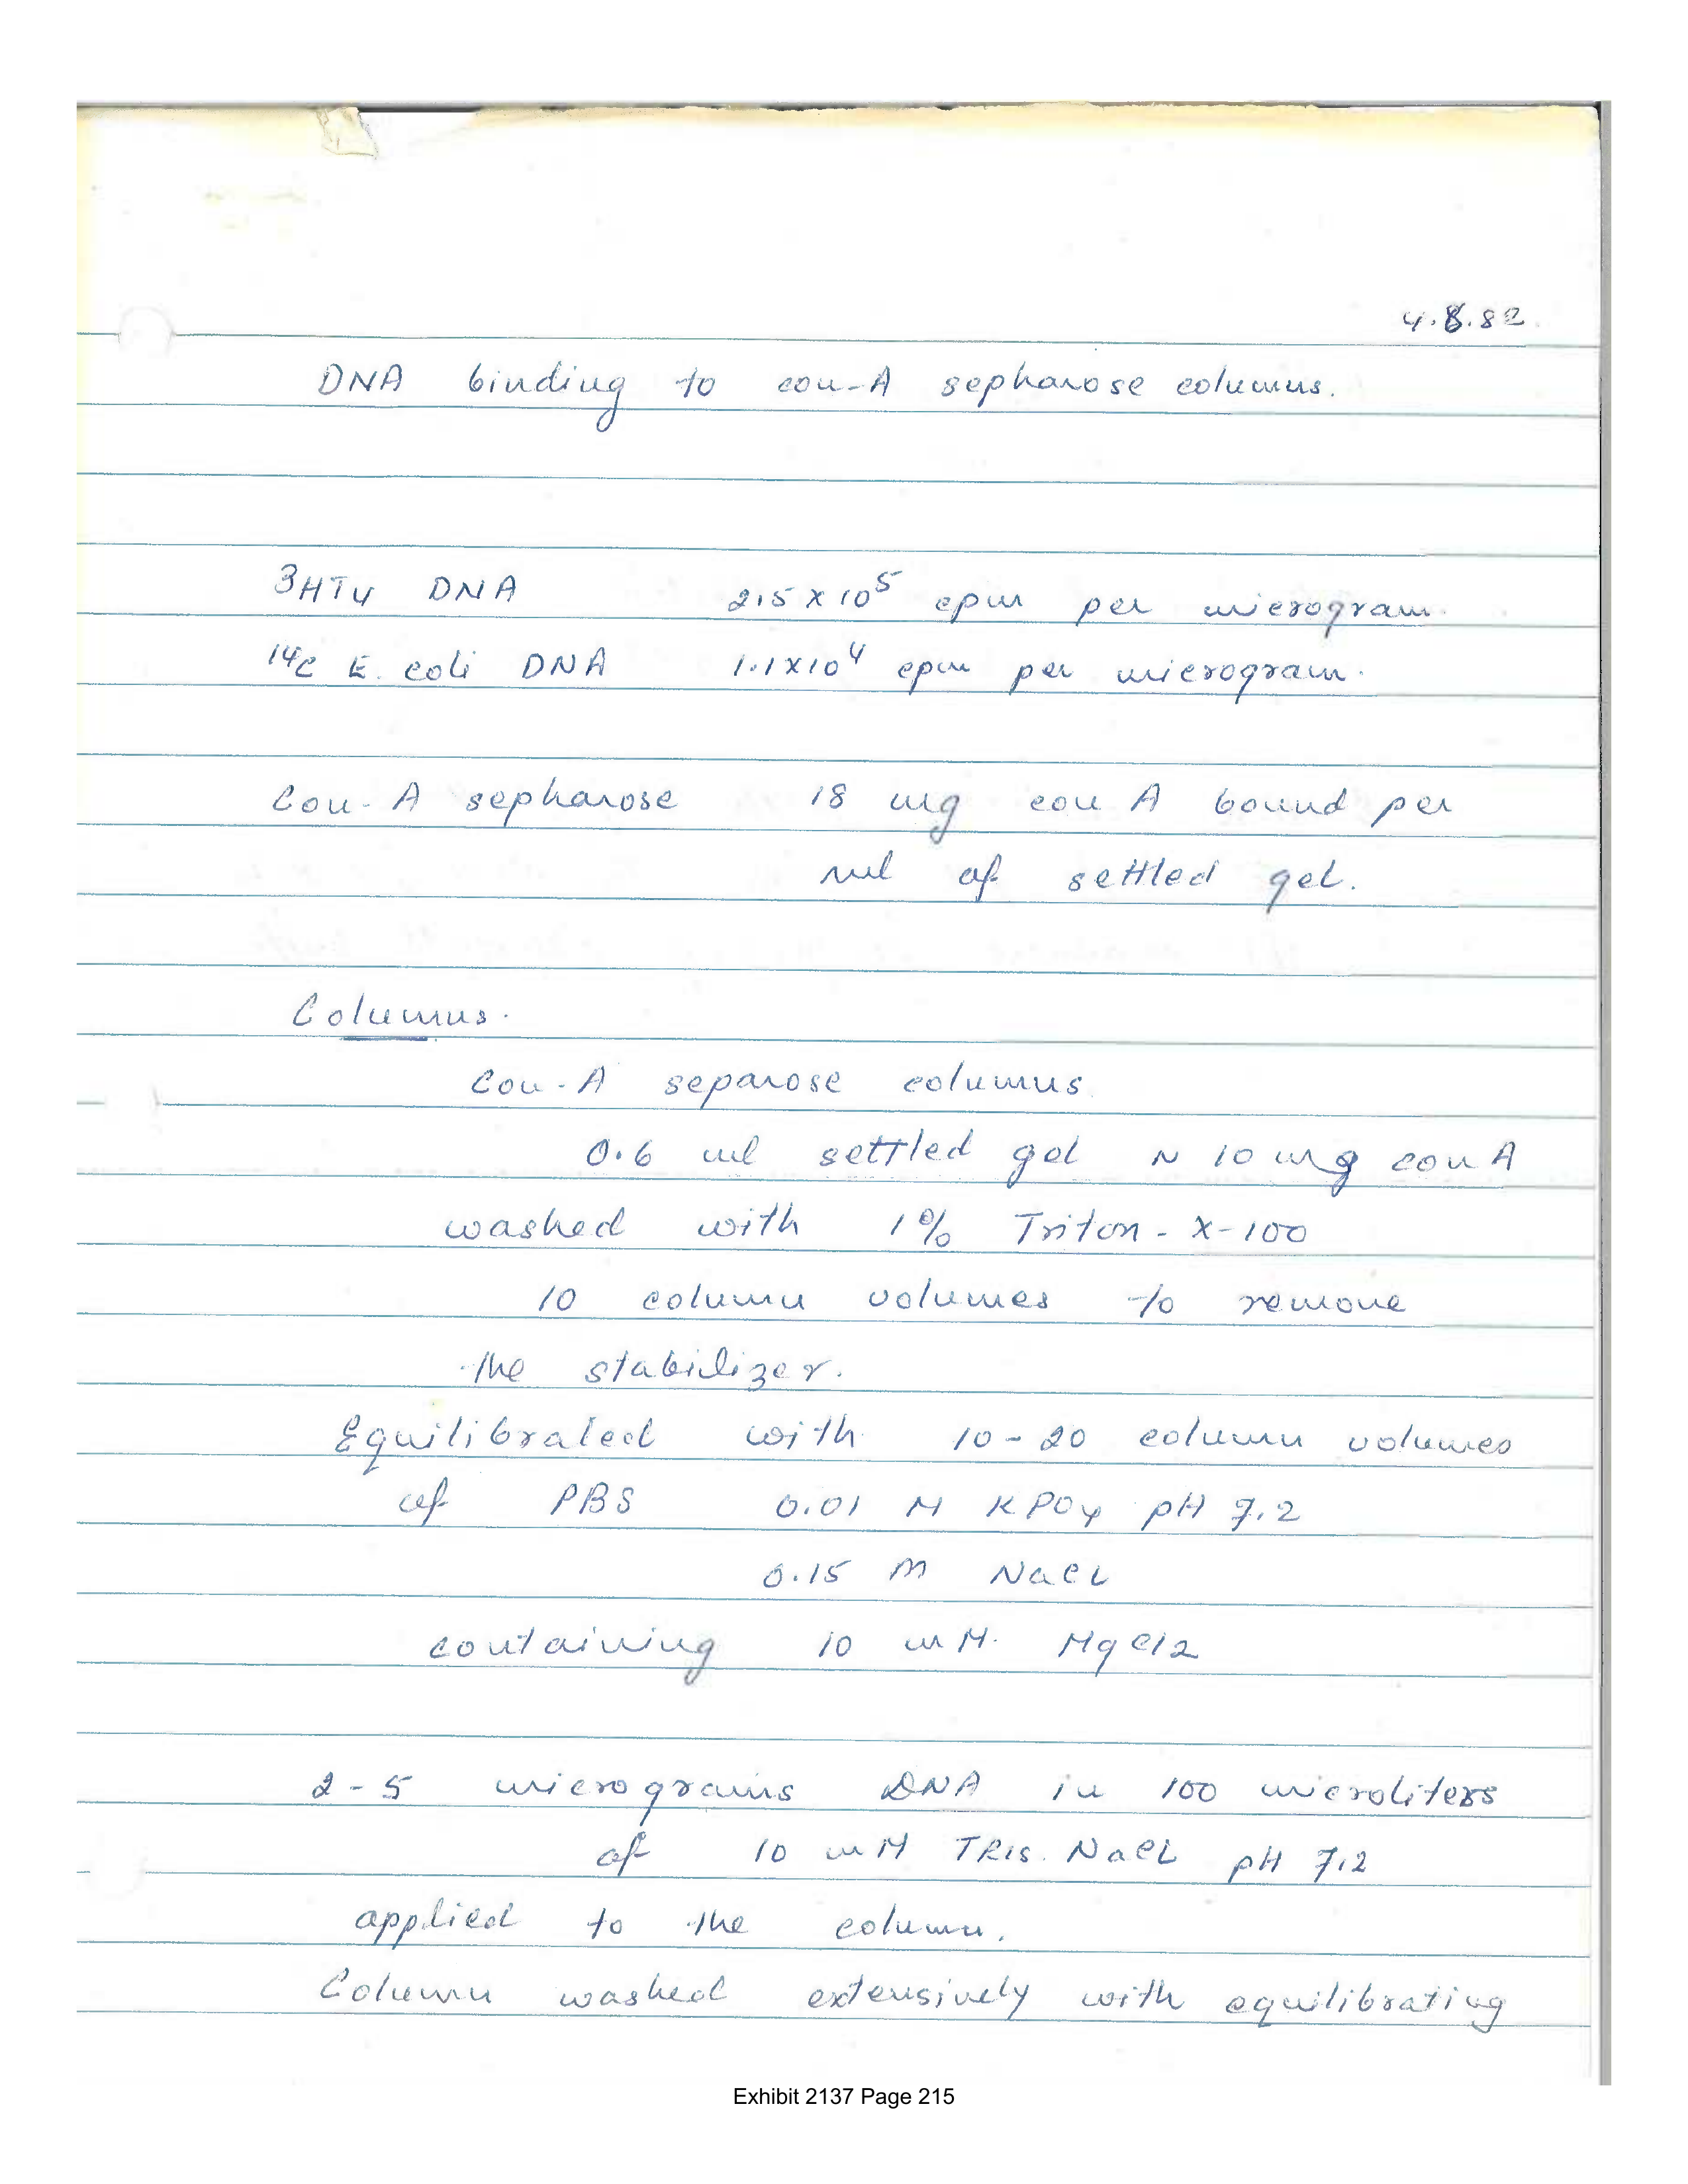 4.8.82
DNA binding to con-A sepharose columns.
3HT4 DNA 2.5 x 10⁵ cpm per microgram.
14C E. coli DNA 1.1x10⁴ cpm per microgram.
Con-A sepharose 18 mg con A bound per
ml of settled gel.
Columns.
Con-A separose columns
0.6 ml settled gel ~ 10 mg con A
washed with 1% Triton-X-100
10 column volumes to remove
the stabilizer.
Equilibrated with 10-20 column volumes
of PBS 0.01 M KPO4 pH 7.2
0.15 M NaCl
containing 10 mM. MgCl2
2-5 micrograms DNA in 100 microliters
of 10 mM TRIS. NaCl pH 7.2
applied to the column.
Column washed extensively with equilibrating
Exhibit 2137 Page 215